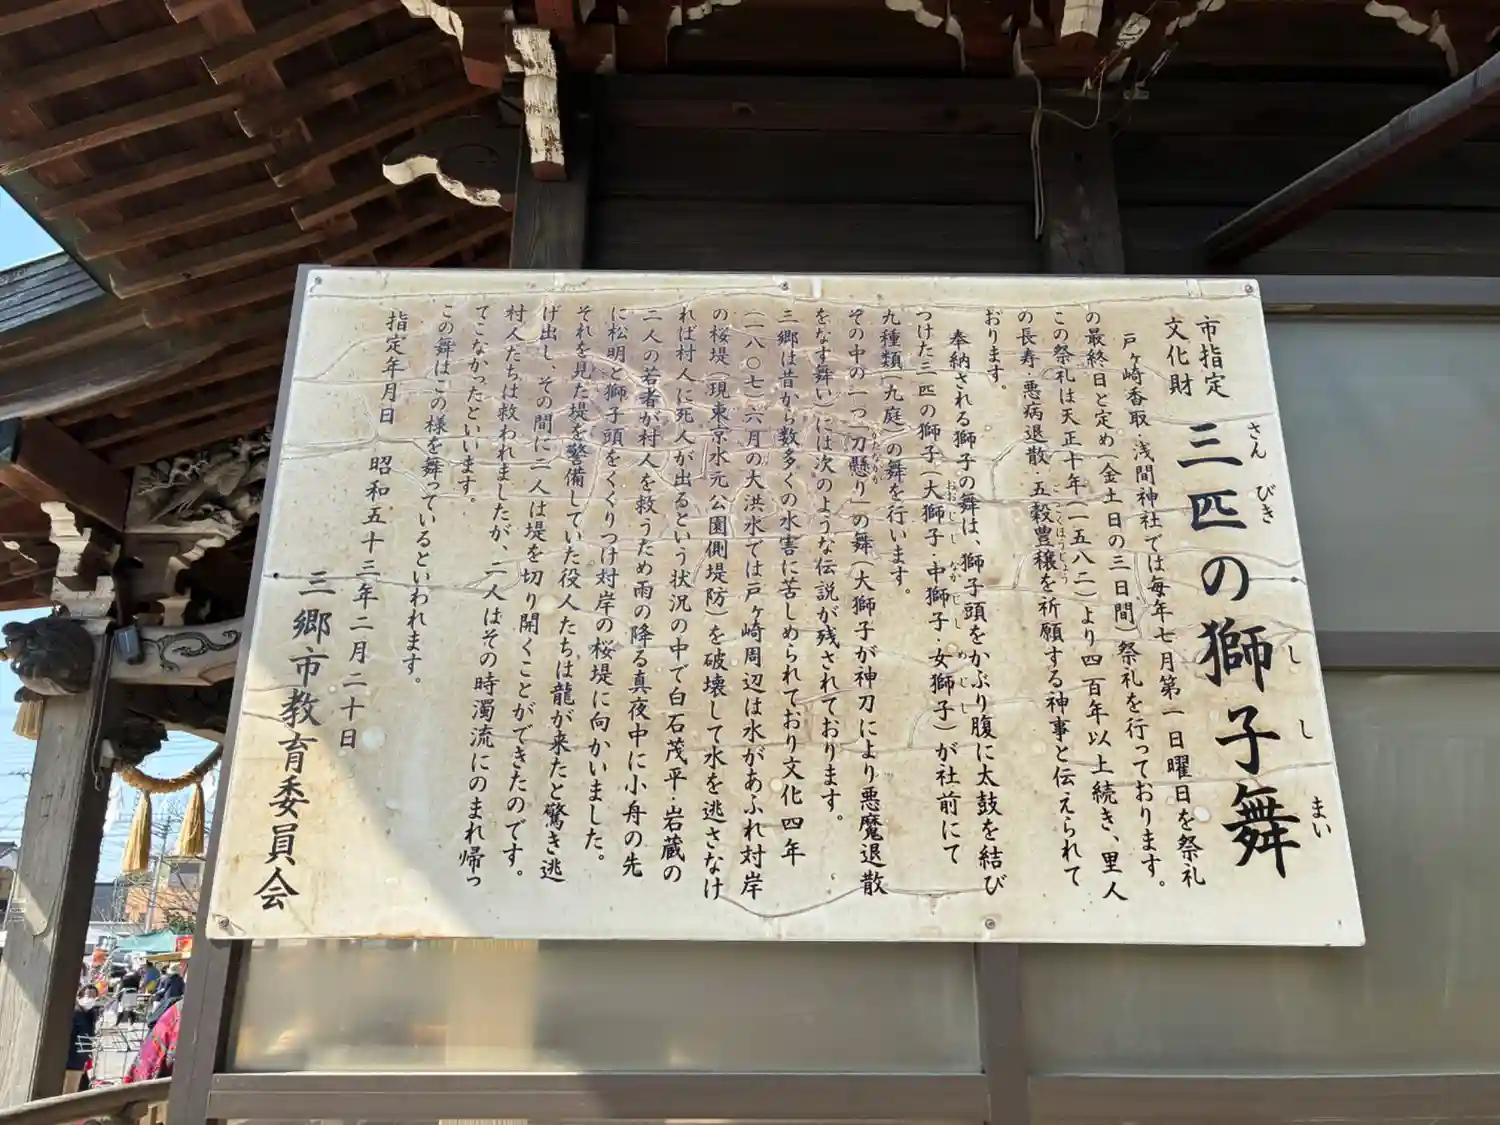 市指定
文化財
三匹の獅子舞
さん びき し し まい
戸ヶ崎香取・浅間神社では毎年七月第一日曜日を祭礼
の最終日と定め(金土日の三日間)祭礼を行っております。
この祭礼は天正十年(一五八二)より四百年以上続き、里人
の長寿・悪病退散・五穀豊穣を祈願する神事と伝えられて
ごこくほうじょう
おります。
奉納される獅子の舞は、獅子頭をかぶり腹に太鼓を結び
つけた三匹の獅子(大獅子・中獅子・女獅子)が社前にて
おおじし なかじし めじし
九種類(九庭)の舞を行います。
その中の一つ「刀懸り」の舞(大獅子が神刀により悪魔退散
をなす舞い)には次のような伝説が残されております。
三郷は昔から数多くの水害に苦しめられており文化四年
(一八〇七)六月の大洪水では戸ヶ崎周辺は水があふれ対岸
の桜堤(現東京水元公園側堤防)を破壊して水を逃さなけ
れば村人に死人が出るという状況の中で白石茂平・岩蔵の
二人の若者が村人を救うため雨の降る真夜中に小舟の先
に松明と獅子頭をくくりつけ対岸の桜堤に向かいました。
それを見た堤を警備していた役人たちは龍が来たと驚き逃
げ出し、その間に二人は堤を切り開くことができたのです。
村人たちは救われましたが、二人はその時濁流にのまれ帰っ
てこなかったといいます。
この舞はこの様を舞っているといわれます。
指定年月日 昭和五十三年二月二十日
三郷市教育委員会